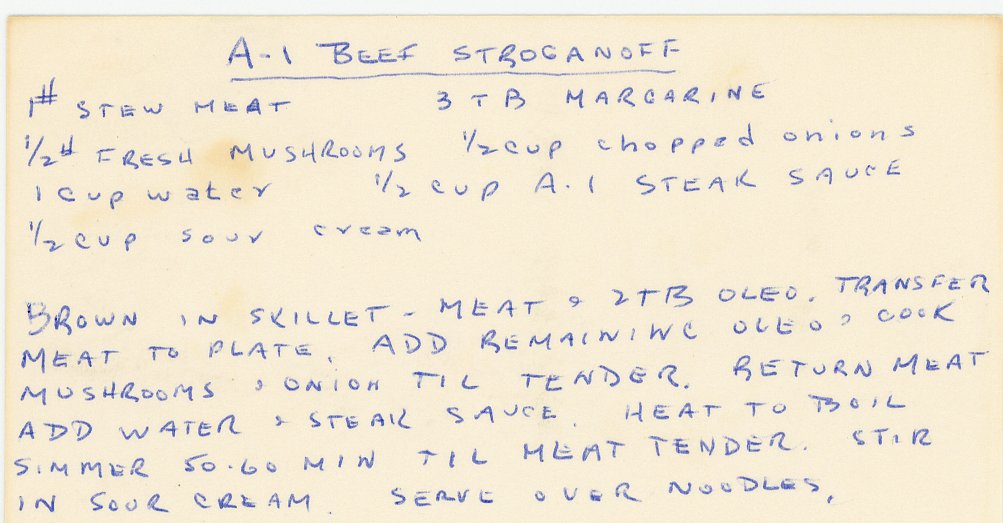 A-1 BEEF STROGANOFF
1# STEW MEAT 3 TB MARGARINE
1/2# FRESH MUSHROOMS 1/2 cup chopped onions
1 cup water 1/2 cup A.1 STEAK SAUCE
1/2 cup sour cream
BROWN IN SKILLET - MEAT & 2 TB OLEO. TRANSFER
MEAT TO PLATE. ADD REMAINING OLEO & COOK
MUSHROOMS & ONION TIL TENDER. RETURN MEAT
ADD WATER & STEAK SAUCE. HEAT TO BOIL
SIMMER 50-60 MIN TIL MEAT TENDER. STIR
IN SOUR CREAM. SERVE OVER NOODLES.